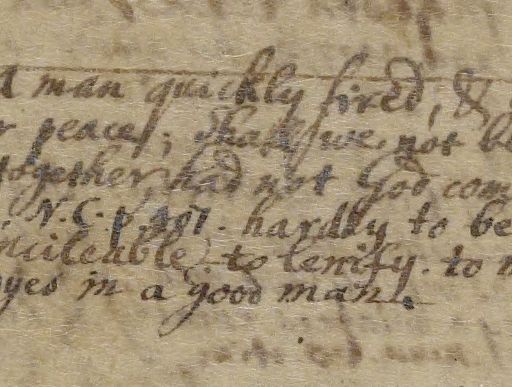 A man quickly fired, &
peace; Shall we not be
together, had not God com
N. C. p. 387. hardly to be
incileable to lenify. to m
eyes in a good man.